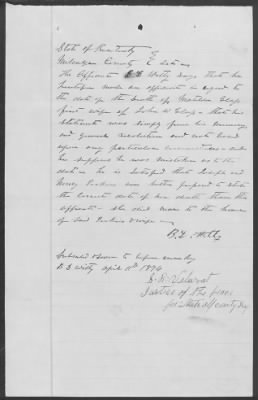 State of Kentucky
County
The Affiant B. L. Witty says that he
heretofore made an affidavit in regard to
the date of the death of Matilda Clap
first wife of John W Clap - that his
statement was simply from his memory
and general recollection and not based
upon any particular
he supposes he was mistaken as to the
date - he is satisfied that Joseph and
Perkins are better prepared to state
the correct date of her death than this
affiant - she died near to the house
of said Perkins & wife -
B. L. Witty
Subscribed & Sworn to before me by
B L Witty April 10th 1874
Justice of the peace
for State & County